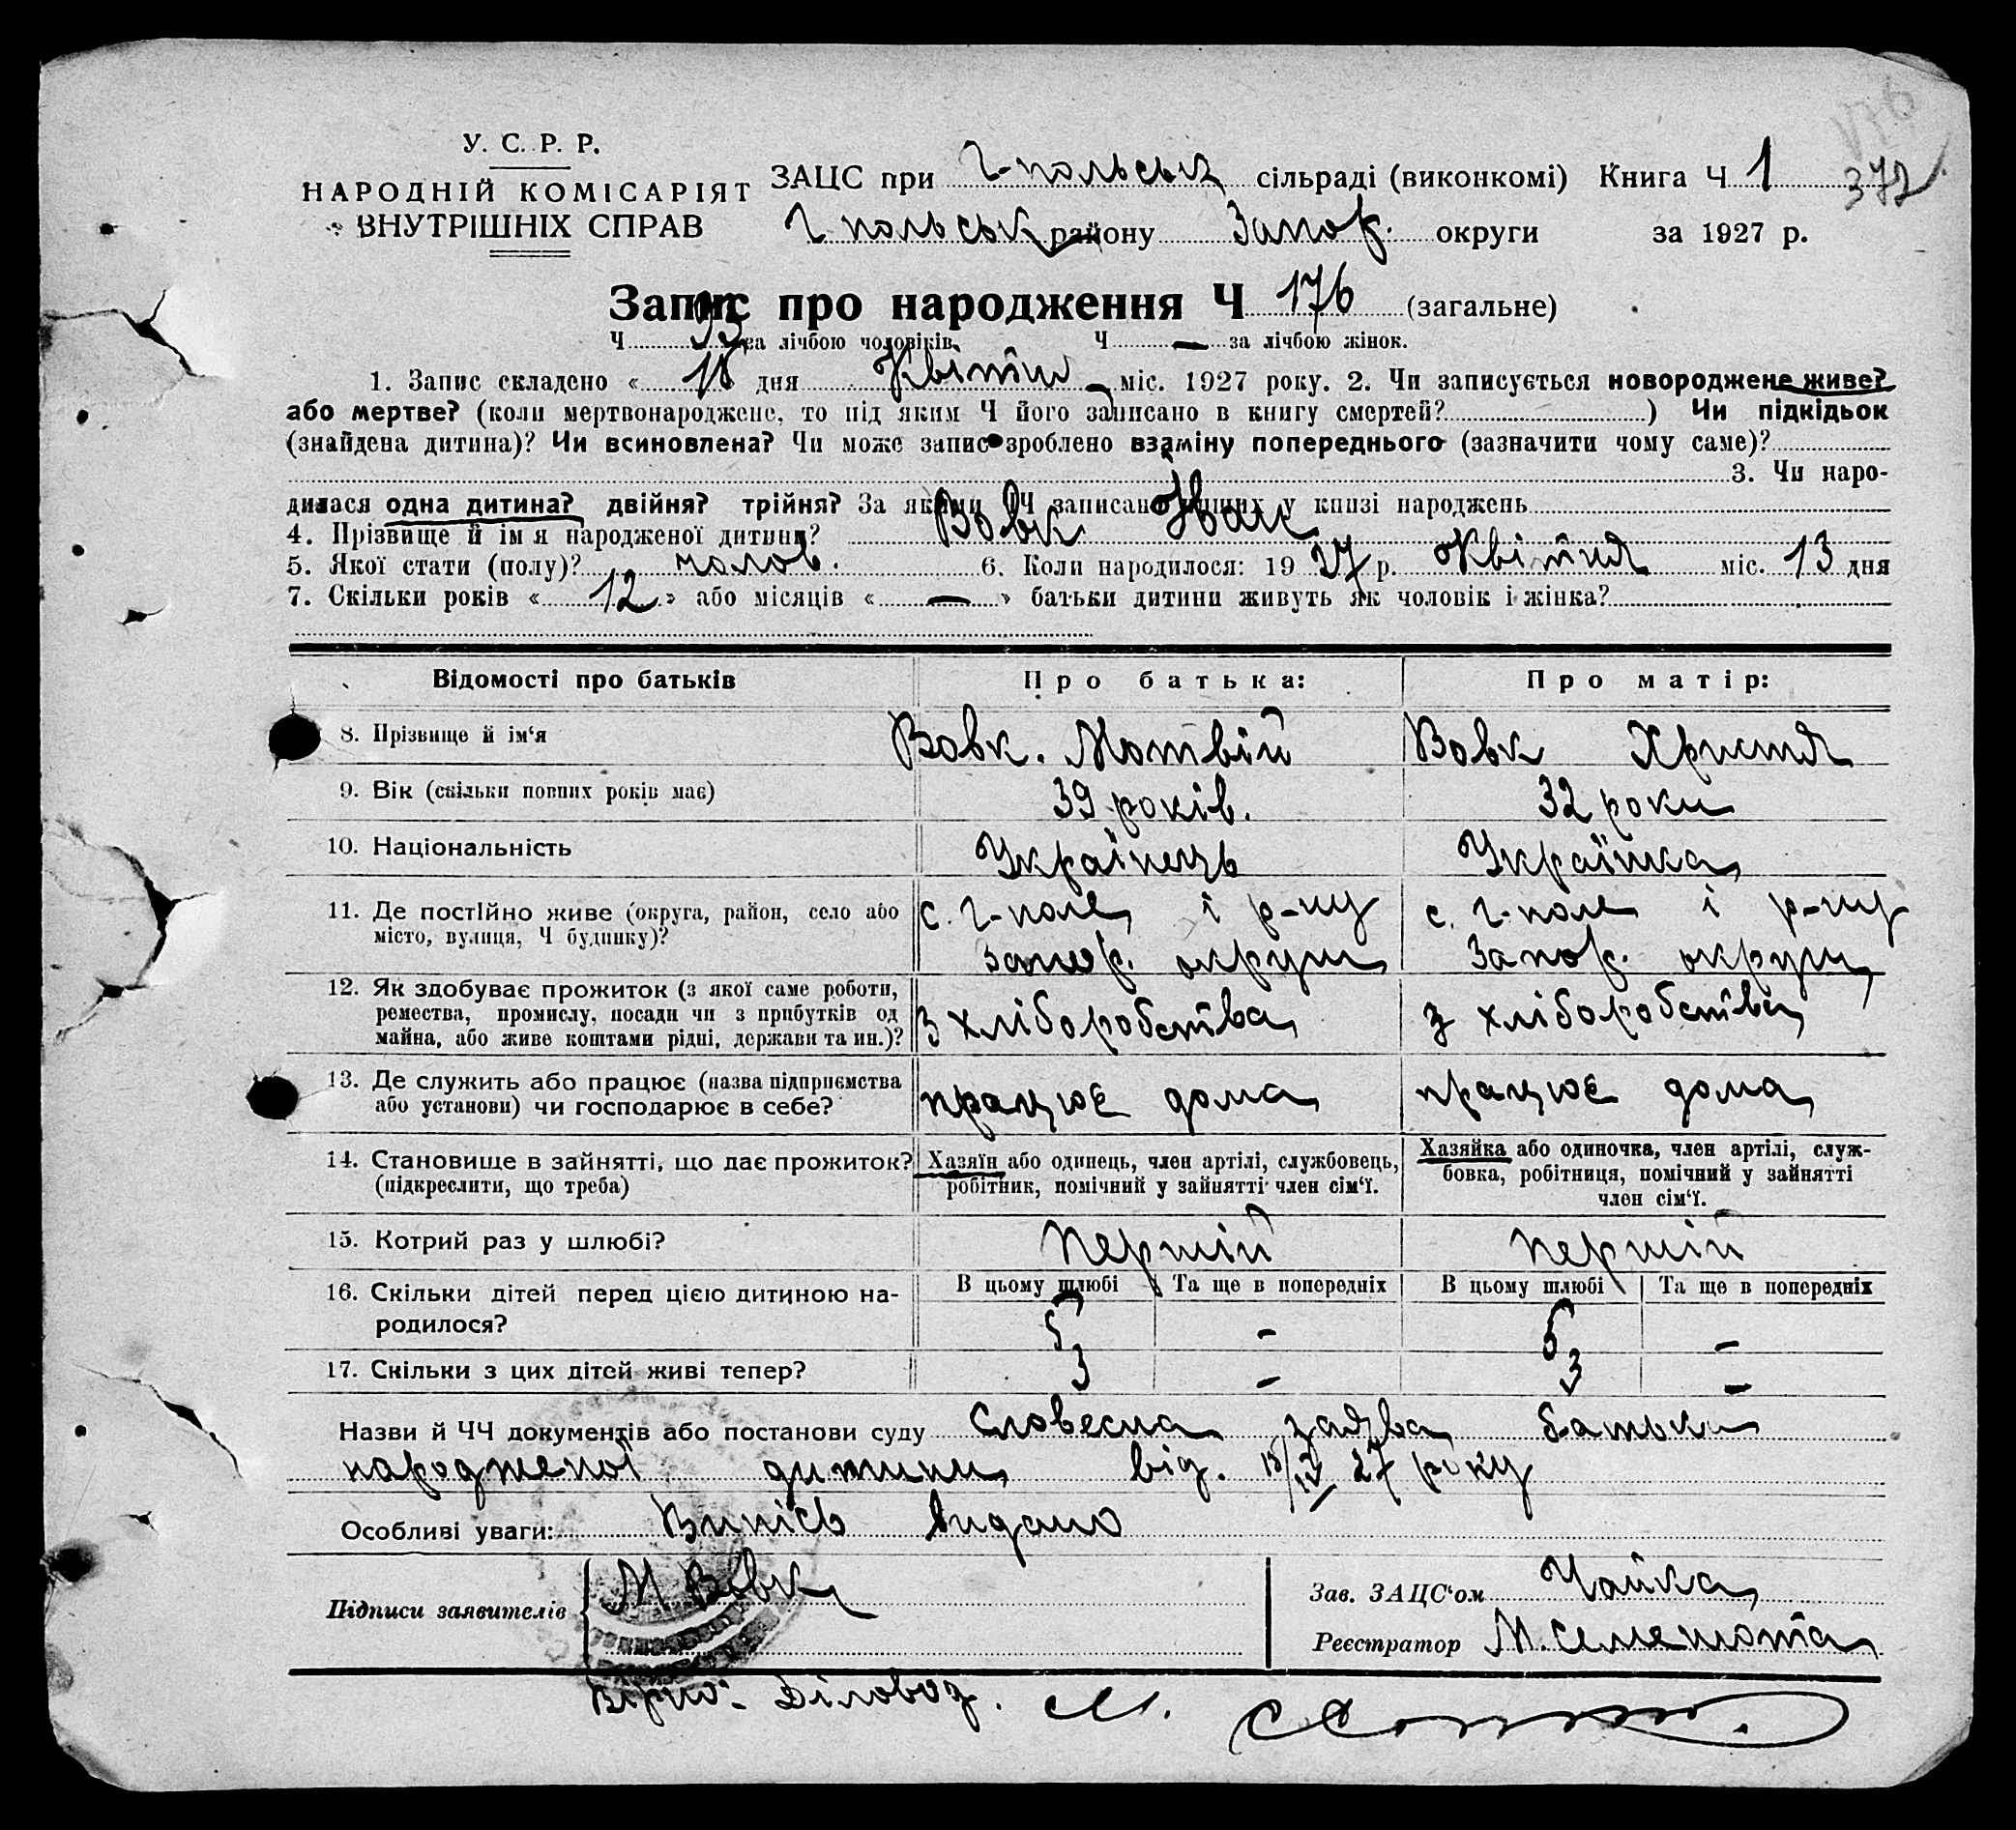 176
У. С. Р. Р.
НАРОДНІЙ КОМІСАРІЯТ
ВНУТРІШНІХ СПРАВ
ЗАЦС при Г-польськ сільраді (виконкомі) Книга Ч 1
372
Г польськ району Запор. округи за 1927 р.
Запис про народження Ч 176 (загальне)
Ч 93 за лічбою чоловіків. Ч — за лічбою жінок.
1. Запис складено « 18 дня Квітня міс. 1927 року. 2. Чи записується новороджене живе?
або мертве? (коли мертвонароджене, то під яким Ч його записано в книгу смертей? ) Чи підкідьок
(знайдена дитина)? Чи всиновлена? Чи може запис зроблено взаміну попереднього (зазначити чому саме)?
3. Чи наро-
дилася одна дитина? двійня? трійня? За якими ЧЧ записано инших у книзі народжень
4. Прізвище й ім'я народженої дитини? Вовк Іван
5. Якої стати (полу)? чолов. 6. Коли народилося: 19 27 р. Квітня міс. 13 дня
7. Скільки років « 12 » або місяців « — » батьки дитини живуть як чоловік і жінка?
Відомості про батьків Про батька: Про матір:
8. Прізвище й ім'я Вовк. Мотвій Вовк Христя
9. Вік (скільки повних років має) 39 років. 32 роки
10. Національність Українець Українка
11. Де постІйно живе (округа, район, село або с. Г-поле і р-ну с. Г-поле і р-ну
місто, вулиця, Ч будинку)? Запор. округи Запор. округи
12. Як здобуває прожиток (з якої саме роботи,
ремества, промислу, посади чи з прибутків од з хліборобства з хліборобства
майна, або живе коштами рідні, держави та ин.)?
13. Де служить або працює (назва підприємства
або установи) чи господарює в себе? працює дома працює дома
14. Становище в зайнятті, що дає прожиток? Хазяїн або одинець, член артілі, службовець, Хазяйка або одиночка, член артілі, служ-
(підкреслити, що треба) робітник, помічний у зайнятті член сім'ї. бовка, робітниця, помічний у зайнятті
член сім'ї.
15. Котрий раз у шлюбі? перший перший
В цьому шлюбі Та ще в попередніх В цьому шлюбі Та ще в попередніх
16. Скільки дітей перед цією дитиною на-
родилося? 5 - 5 -
17. Скільки з цих дітей живі тепер? 3 - 3 -
Назви й ЧЧ документів або постанови суду Словесна заява батька
народженої дитини від. 18/IV 27 року
Особливі уваги: Випісь видано
Підписи заявителів М Вовк Зав. ЗАЦС'ом Чайка
Реєстратор М. Семенюта
Вірно: Діловод. М.